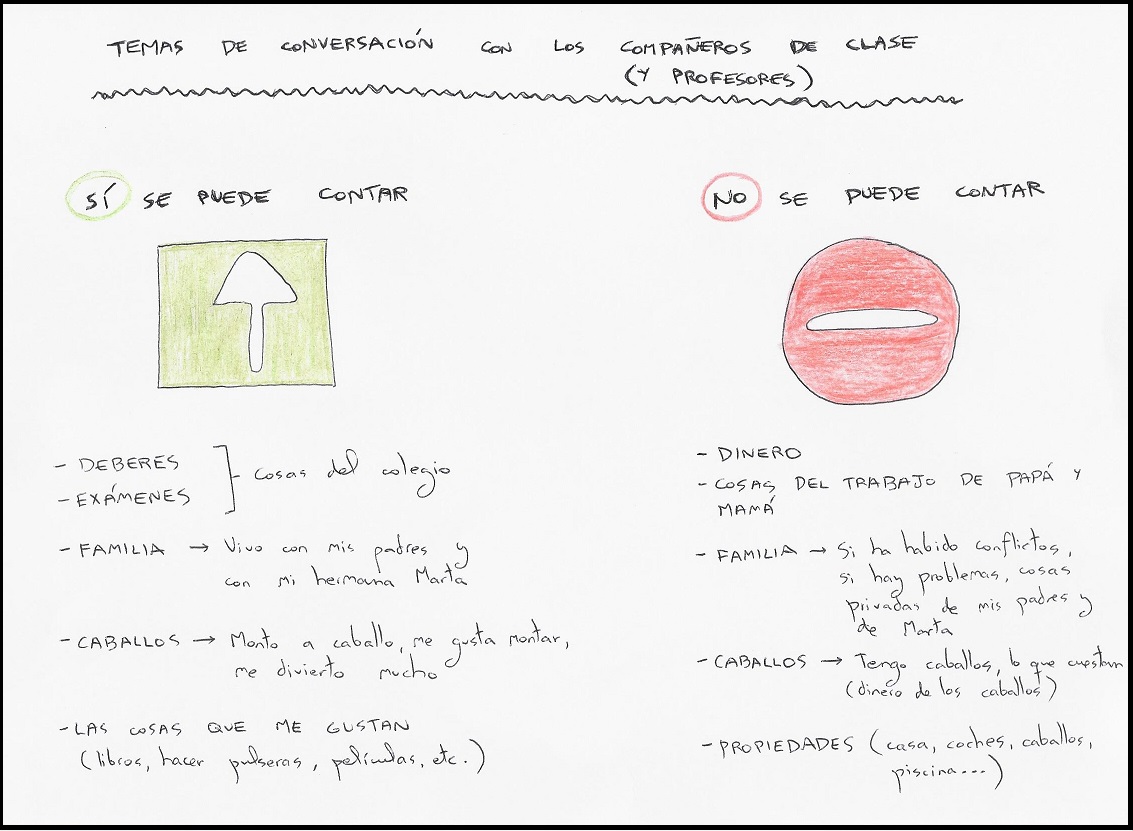 TEMAS DE CONVERSACIÓN CON LOS COMPAÑEROS DE CLASE
(Y PROFESORES)
SÍ SE PUEDE CONTAR
- DEBERES
- EXÁMENES
cosas del colegio
- FAMILIA → Vivo con mis padres y
con mi hermana Marta
- CABALLOS → Monto a caballo, me gusta montar,
me divierto mucho
- LAS COSAS QUE ME GUSTAN
(libros, hacer pulseras, películas, etc.)
NO SE PUEDE CONTAR
- DINERO
- COSAS DEL TRABAJO DE PAPÁ Y
MAMÁ
- FAMILIA → Si ha habido conflictos,
si hay problemas, cosas
privadas de mis padres y
de Marta
- CABALLOS → Tengo caballos, lo que cuestan
(dinero de los caballos)
- PROPIEDADES (casa, coches, caballos,
piscina...)